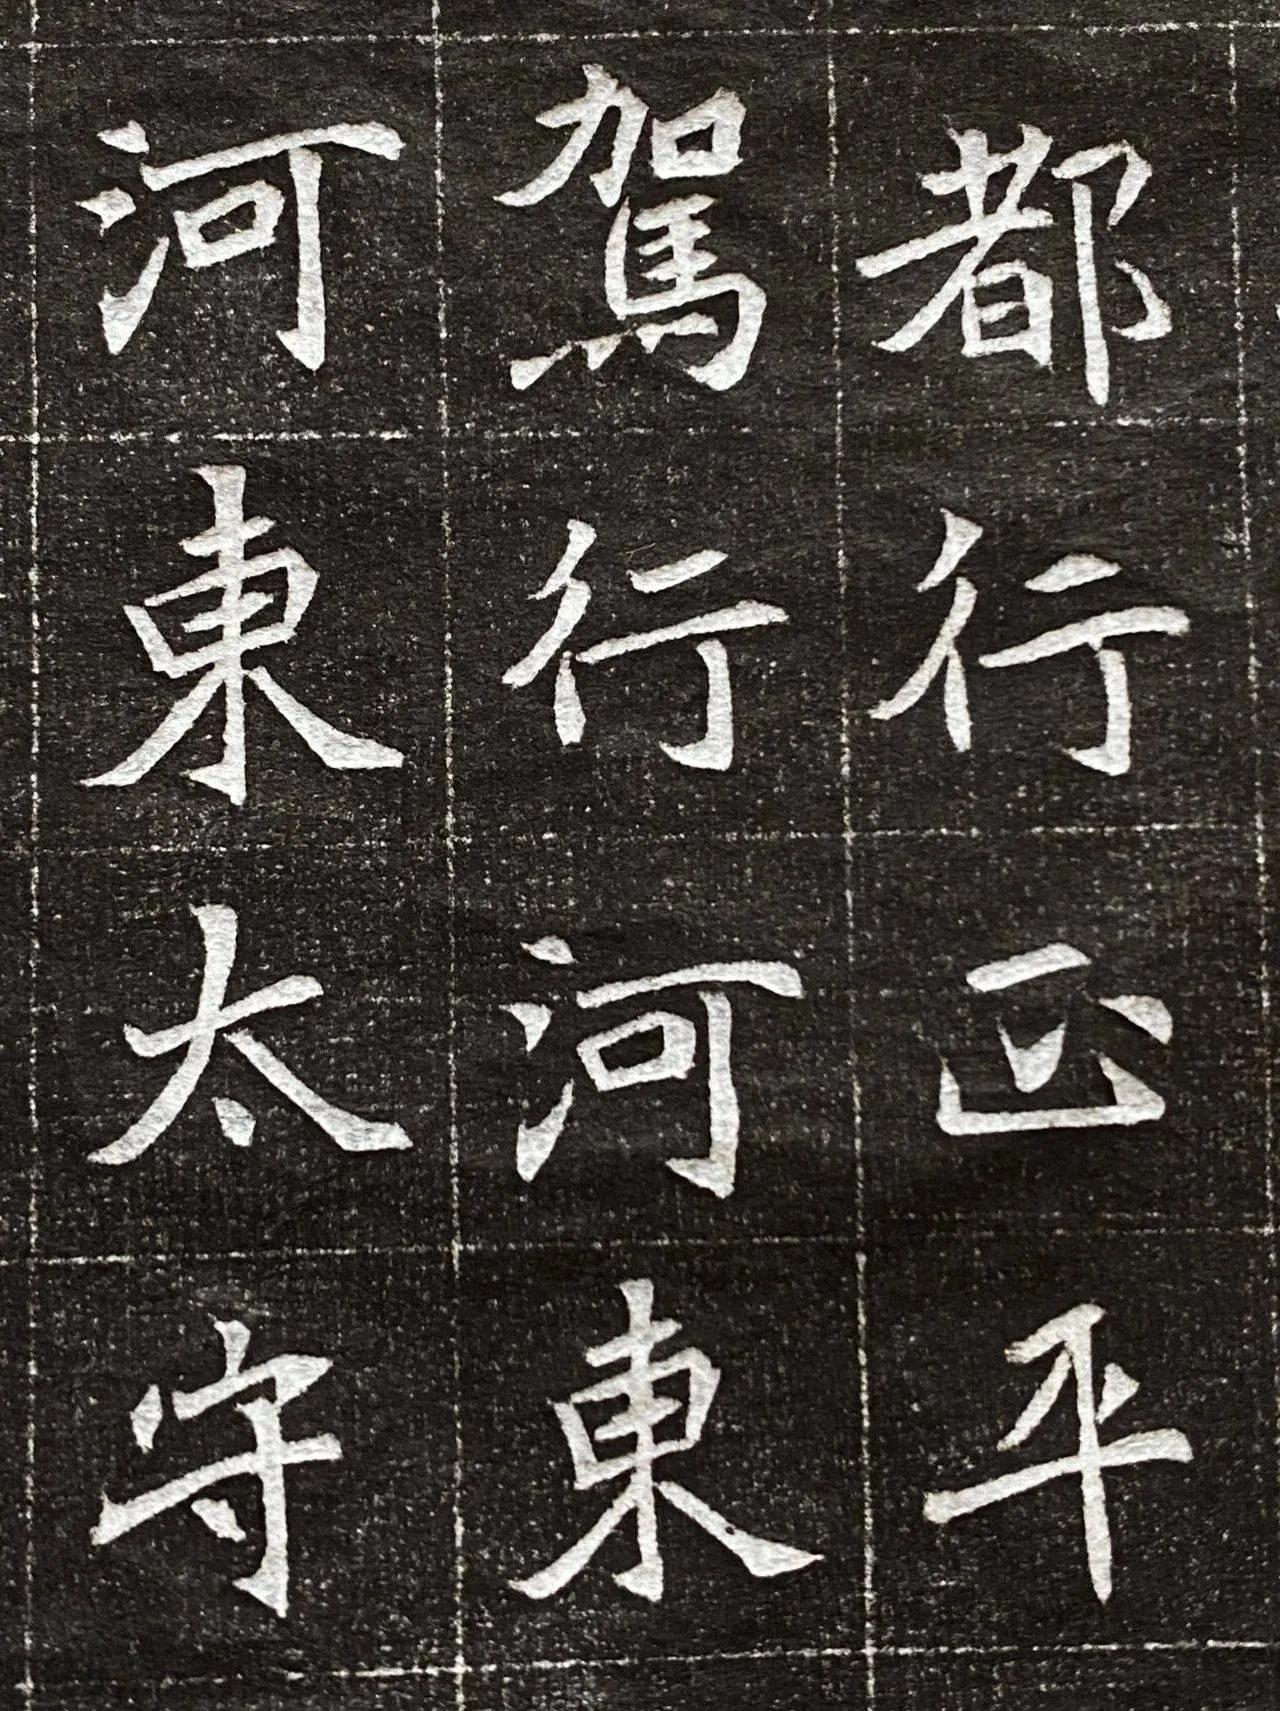 都行正平
駕行河東
河東太守